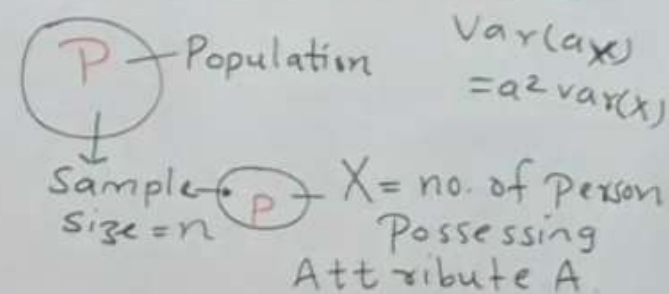 P Population
Var(ax)
=a² var(x)
Sample P X = no. of Person
Size = n Possessing
Attribute A